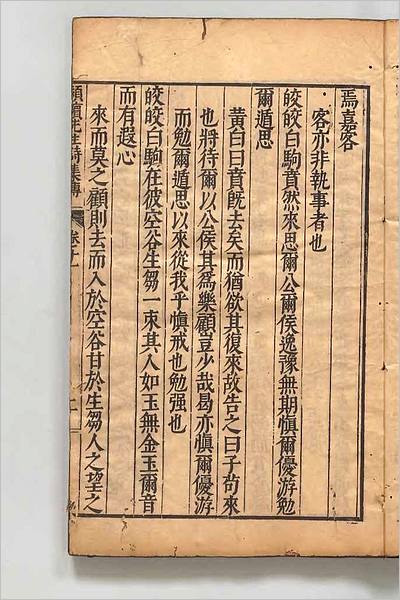 焉嘉客
客亦非執事者也
皎皎白駒賁然來思爾公爾侯逸豫無期慎爾優游勉
爾遁思
黃白曰賁既去矣而猶欲其復來故告之曰子苟來
也將待爾以公侯其爲樂顧豈少哉曷亦慎爾優游
而勉爾遁思以來從我乎慎戒也勉强也
皎皎白駒在彼空谷生芻一束其人如玉無金玉爾音
而有遐心
來而莫之顧則去而入於空谷甘於生芻人之望之
先生詩集傳